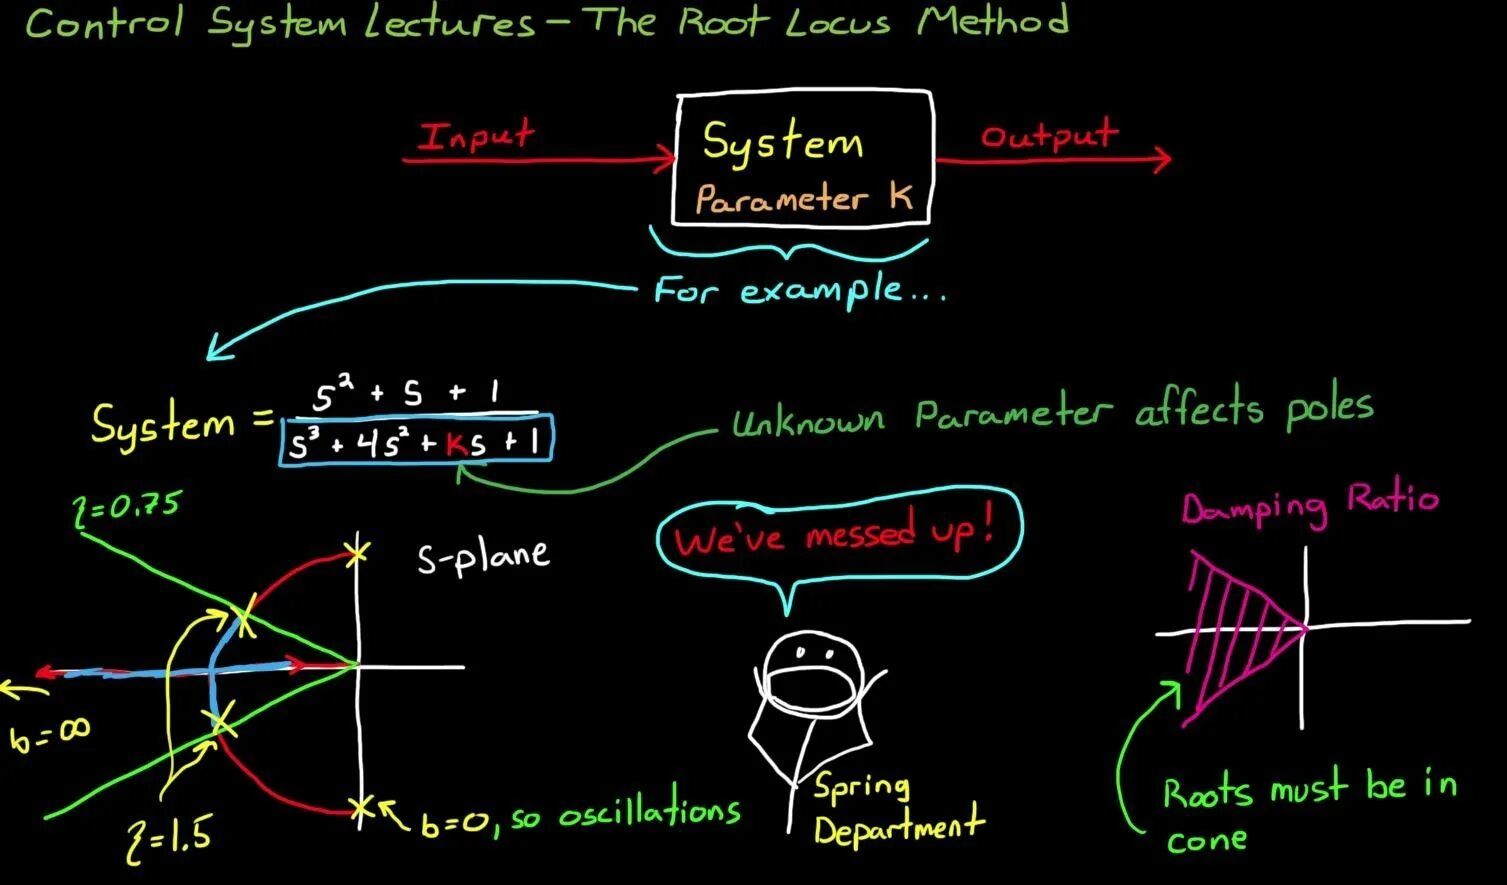 Control System Lectures - The Root Locus Method
Input
System
Parameter K
Output
For example...
System = s² + s + 1
s³ + 4s² + Ks + 1
Unknown Parameter affects poles
ζ=0.75
s-plane
We've messed up!
Damping Ratio
b=∞
ζ=1.5
b=0, so oscillations
Spring
Department
Roots must be in
cone